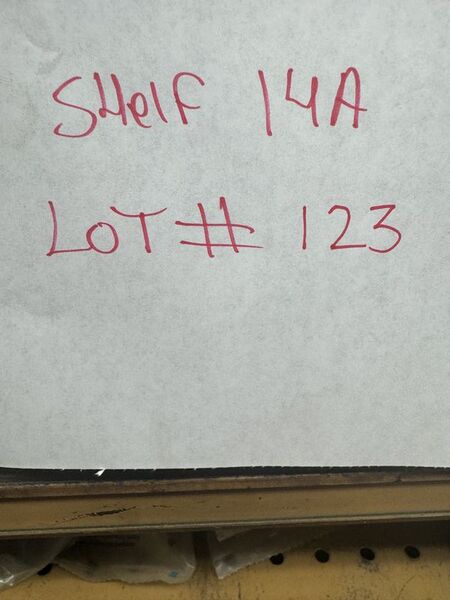 SHelF 14A
LoT# 123